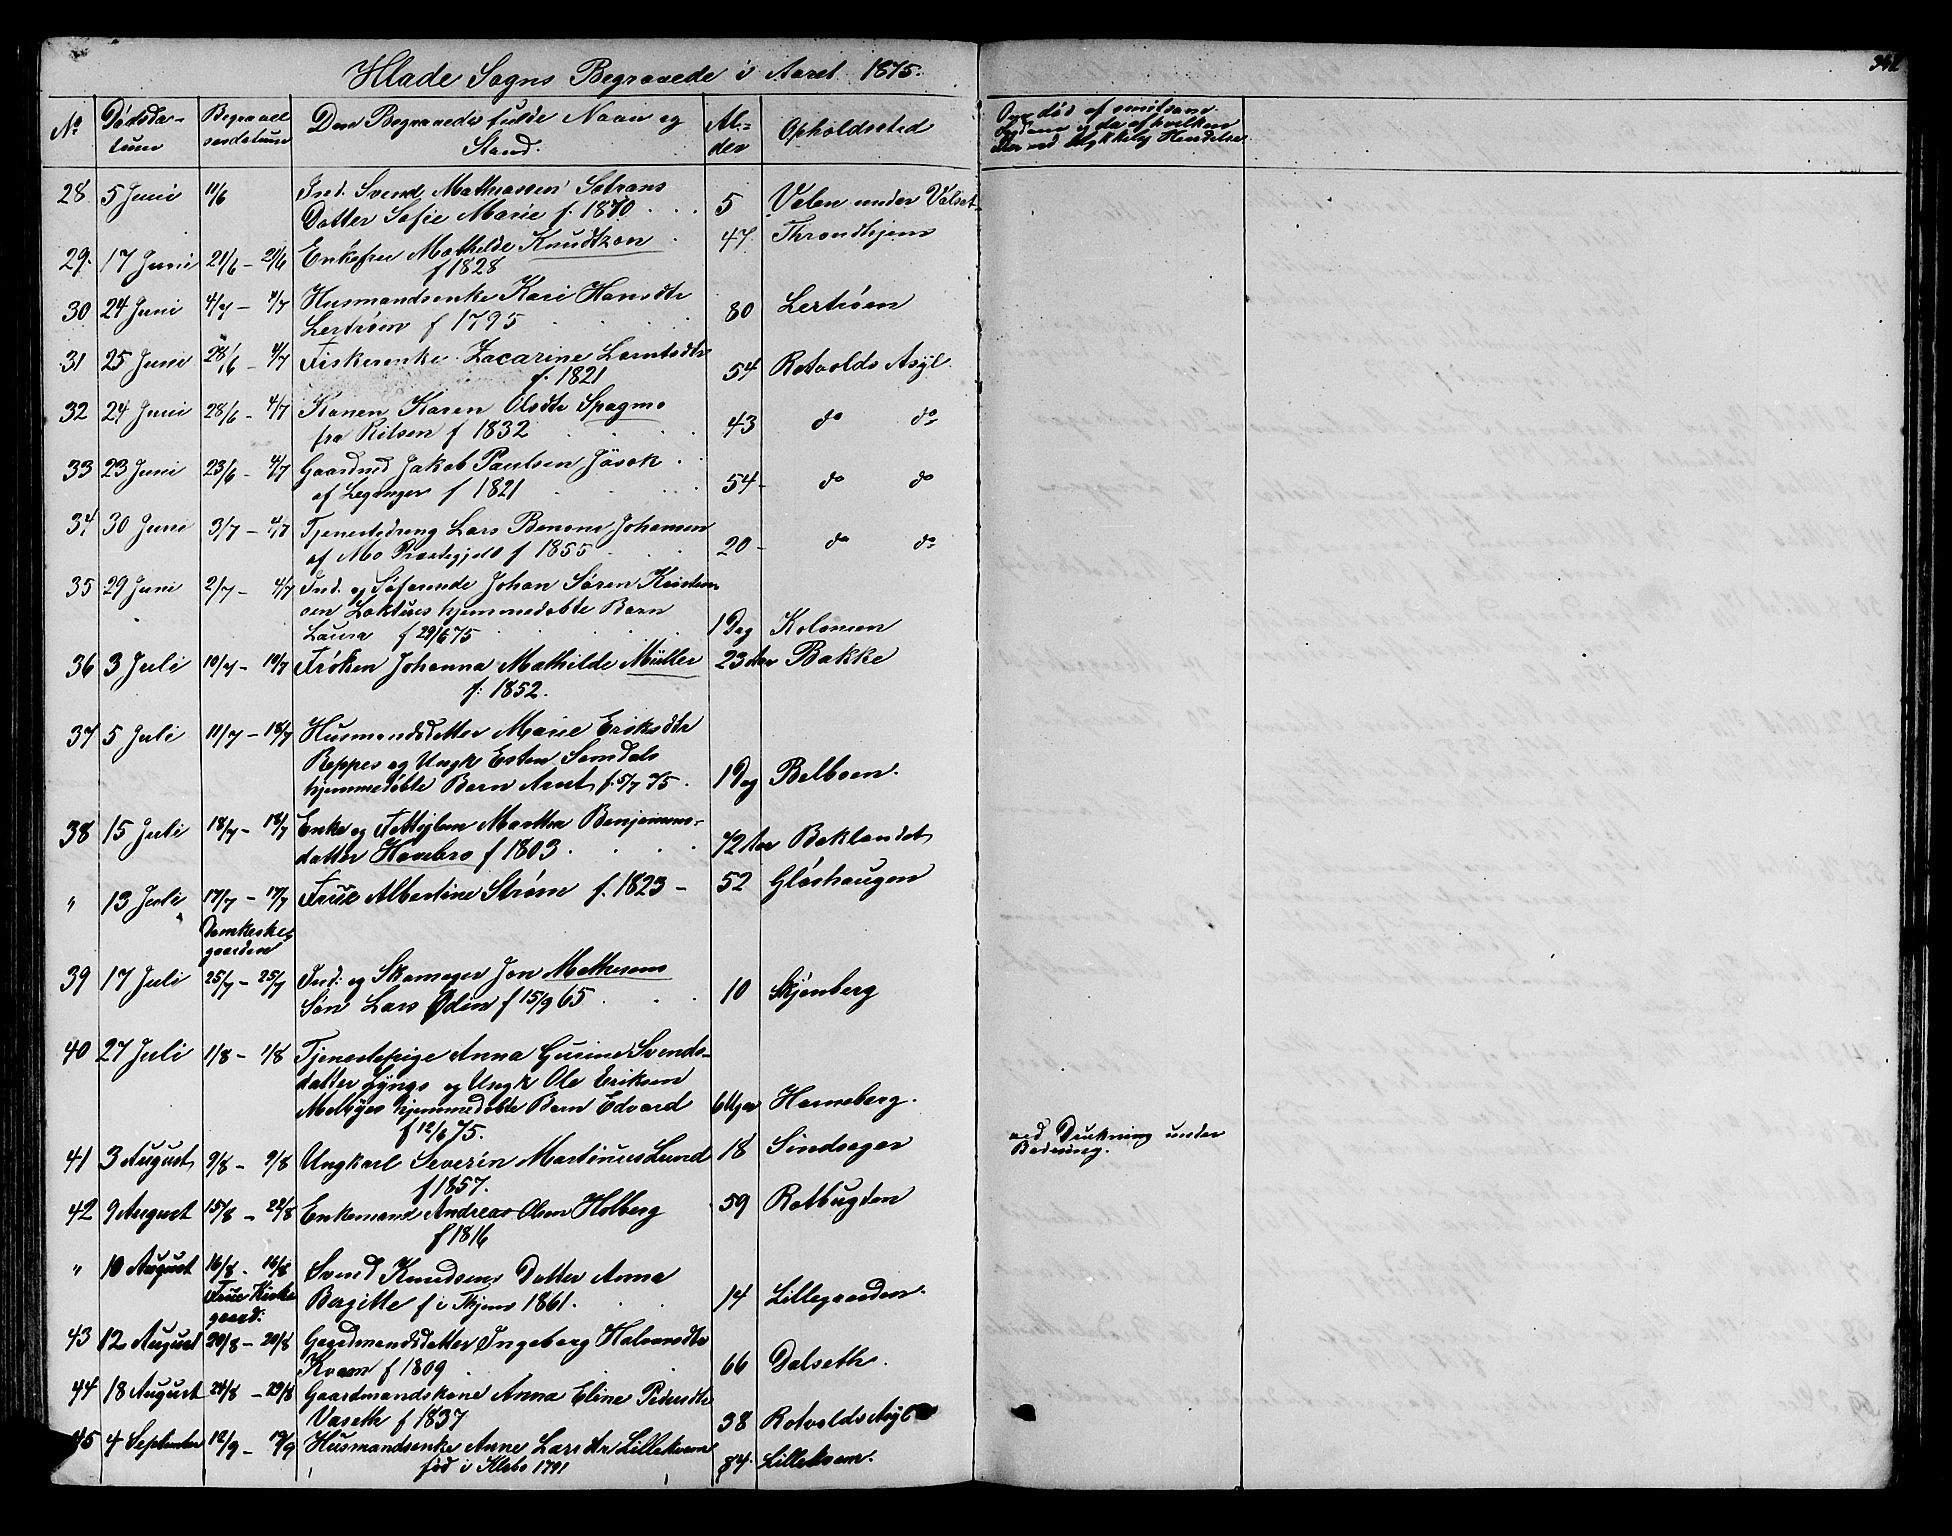 Hlade Sogns Begravede i Aaret 1875.
361
No Dødsda- tum Begravel sesdatum Den Begravedes fulde Navn og Stand. Al- der Opholdssted
Om død af smitsam
Sygdom og da af hvilken
eller ved ulykkelig Hendelse
28 5 Juni 11/6 Ind. Svend Mathiassens
Datter Sofie Marie f. 1870 . . . 5 Valen under Valset
29. 17 Juni 21/6 - 21/6 Enkefru Mathilde Knudtzon . 47. Throndhjem
f 1828
30 24 Juni 4/7 - 4/7 Husmandsenke Kari Hansdtr
Lertrøen f 1795 . . . 80 Lertrøen
31 25 Juni 28/6 - 4/7 Fiskerenke Zacarine Larntsdtr
f. 1821 54 Rotvolds Asyl.
32 24 Juni 28/6 - 4/7 Konen Karen Olsdtr Spagmo
fra Ritsem f 1832 . . . 43 do do
33 23 Juni 23/6 - 4/7 Gaardmd Jakob Paulsen Jøsok .
af Leganger f 1821 . . . 54- do do
34 30 Juni 3/7 - 4/7 Tjenestedreng Lars Benoni Johansen
af Mo Prestegjeld f 1855 . . . 20- do do
35 29 Juni 2/7 - 4/7 Ind. og Søfarende Johan Søren Kristen-
sen Loktus hjemmedøbte Barn
Laura f 29/6 75 . . . 1 Dag Kolonien
36 3 Juli 10/7 - 10/7 Frøken Johanna Mathilde Müller 23 Aar Bakke
f. 1852.
37 5 Juli 11/7 - 18/7 Husmandsdatter Marie Eriksdtr
Reppes og Ungk Esten Semdals
hjemmedøbte Barn Arnt f. 5/7 75 . 1 Dag Belboen.
38 15 Juli 18/7 - 18/7 Enke og Fattiglem Martha Benjamins-
datter Havebro f 1803 . . . 72 Aar Baklandet
" 13 Juli 17/7 - 17/7 Frue Albertine Strøm f. 1823 - 52 Gløshaugen
Domkirke
gaarden
39 17 Juli 25/7 - 25/7 Ind. og Skomager Jon Mathesens
Søn Lars Odin f 15/9 65 . . . 10 Skjenberg
40 27 Juli 1/8 - 1/8 Tjenestepige Anna Gusine Svends-
datter Lyngs og Ungk Ole Eriksen
Melbyes hjemmedøbte Barn Edvard 6 Uger Harreberg.
f 12/6 75.
41 3 August 9/8 - 9/8 Ungkarl Severin Martinus Lund 18 Sindsager ved Drukning under
Badning.
f 1857.
42 9 August 15/8 - 22/8 Enkemand Andreas Olsen Holberg . 59 Rotbugten
f 1816
" 10 August 16/8 - 16/8 Svend Knudsens Datter Anna
Frue Kirke
gaard: Bergitte f i Thjem 1861 . . . 14 Lillegaarden.
43 12 August 20/8 - 20/8 Gaardmandsdatter Ingeborg Halvorsdtr
Kvam f 1809 . . . 66 Dalseth.
44 18 August 24/8 - 29/8 Gaardmandskone Anna Eline Pedersdtr
Vaseth f 1837 38 Rotvolds Asyl
45 4 September 12/9 - 12/9 Husmandsenke Anne Larsdtr Lillekvam
fød i Klæbo 1791 84. Lillekvam.